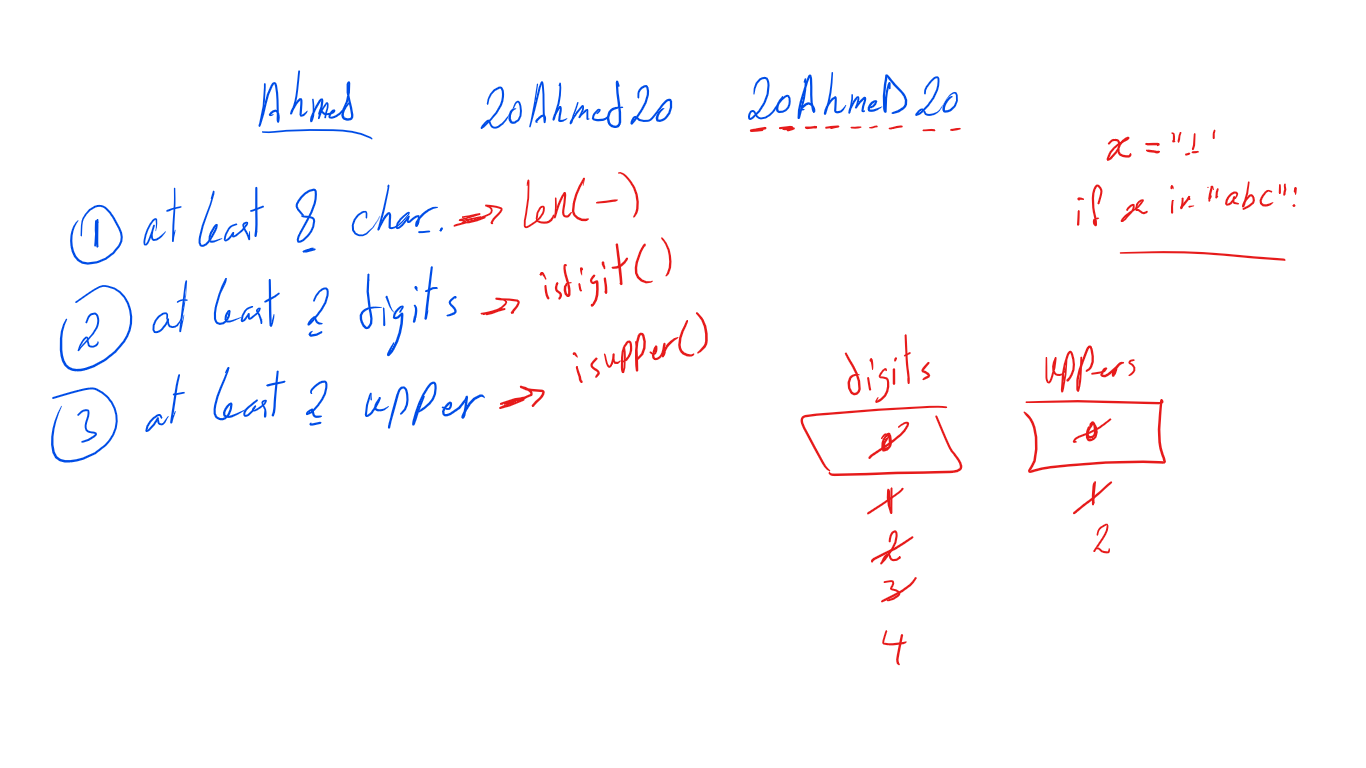 Ahmed 20Ahmed20 20AhmeD20
x = "1"
if x in "abc":
1 at least 8 char. → len(-)
2 at least 2 digits → isdigit()
3 at least 2 upper → isupper()
digits uppers
0 0
1 1
2 2
3
4